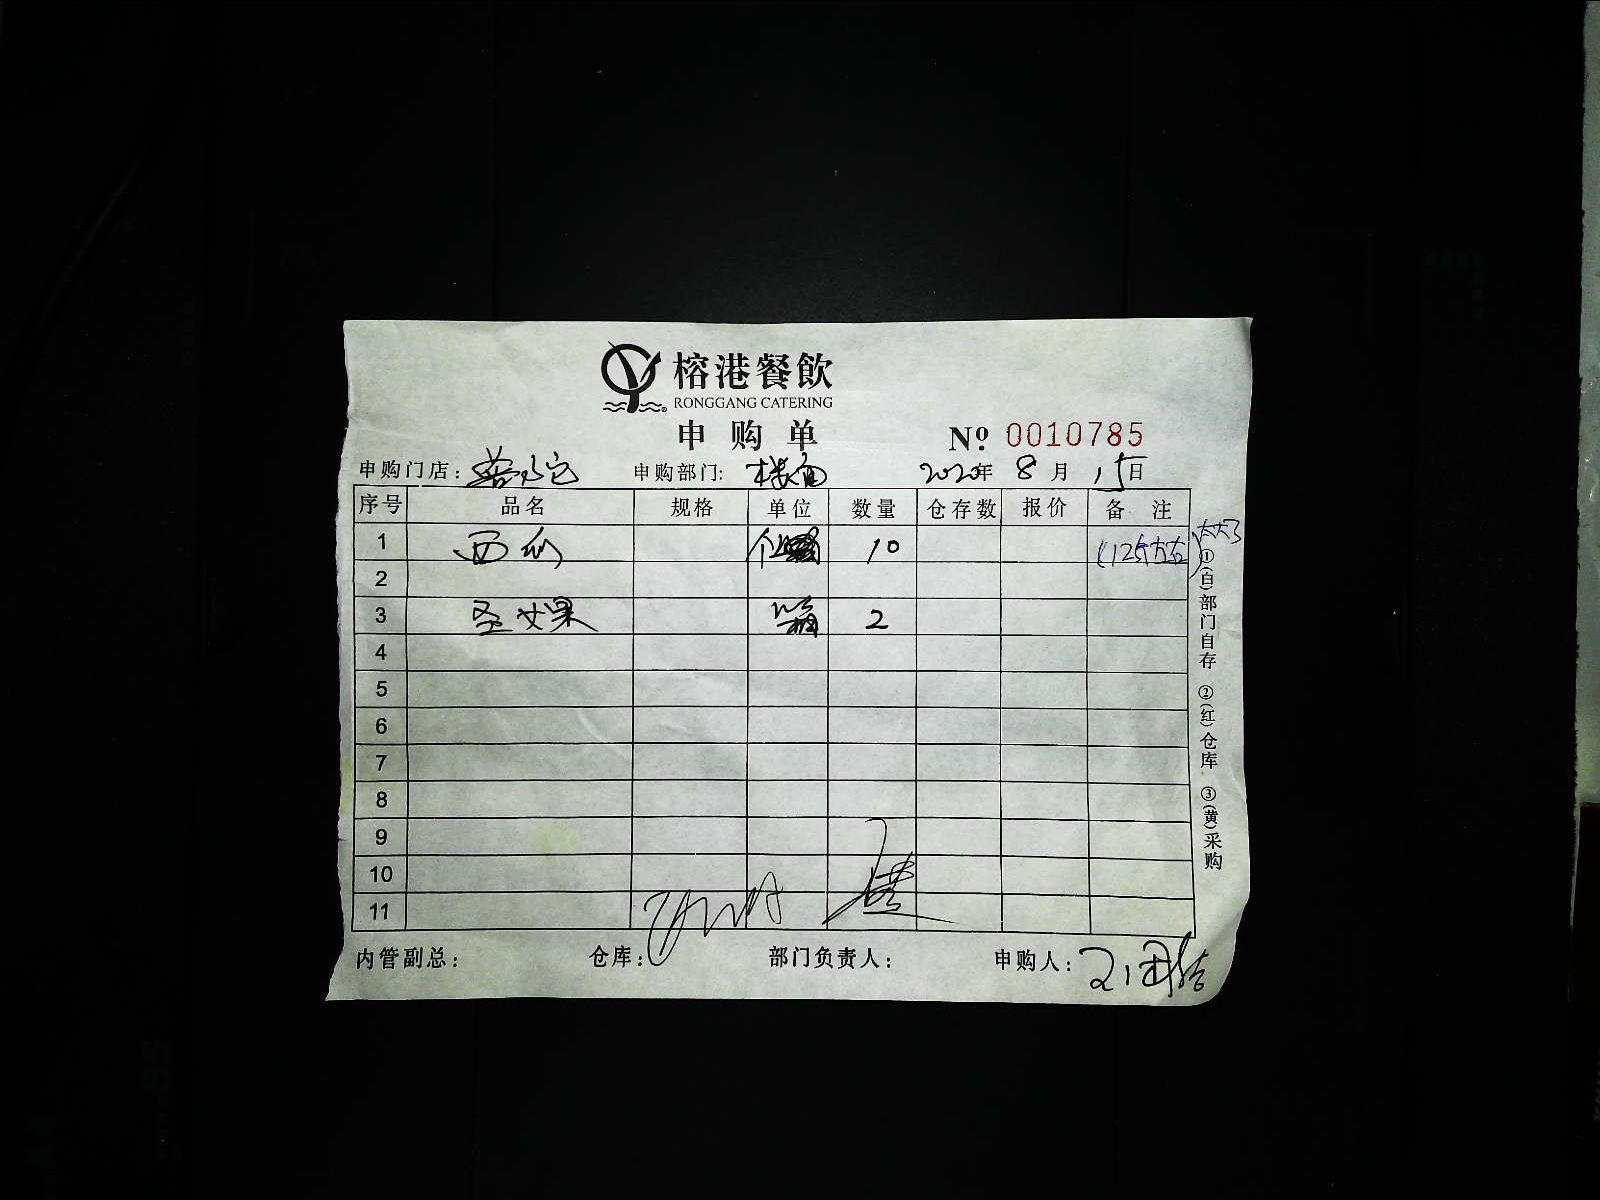 榕港餐飲
RONGGANG CATERING
申购单
Nº 0010785
申购门店: 申购部门: 楼面 2020年 8月 15日
序号 品名 规格 单位 数量 仓存数 报价 备 注
1 西瓜 个 10 (12斤左右) 太大了
2
3 圣女果 箱 2
4
5
6
7
8
9
10
11
①(白)部门自存 ②(红)仓库 ③(黄)采购
内管副总: 仓库: 部门负责人: 申购人: